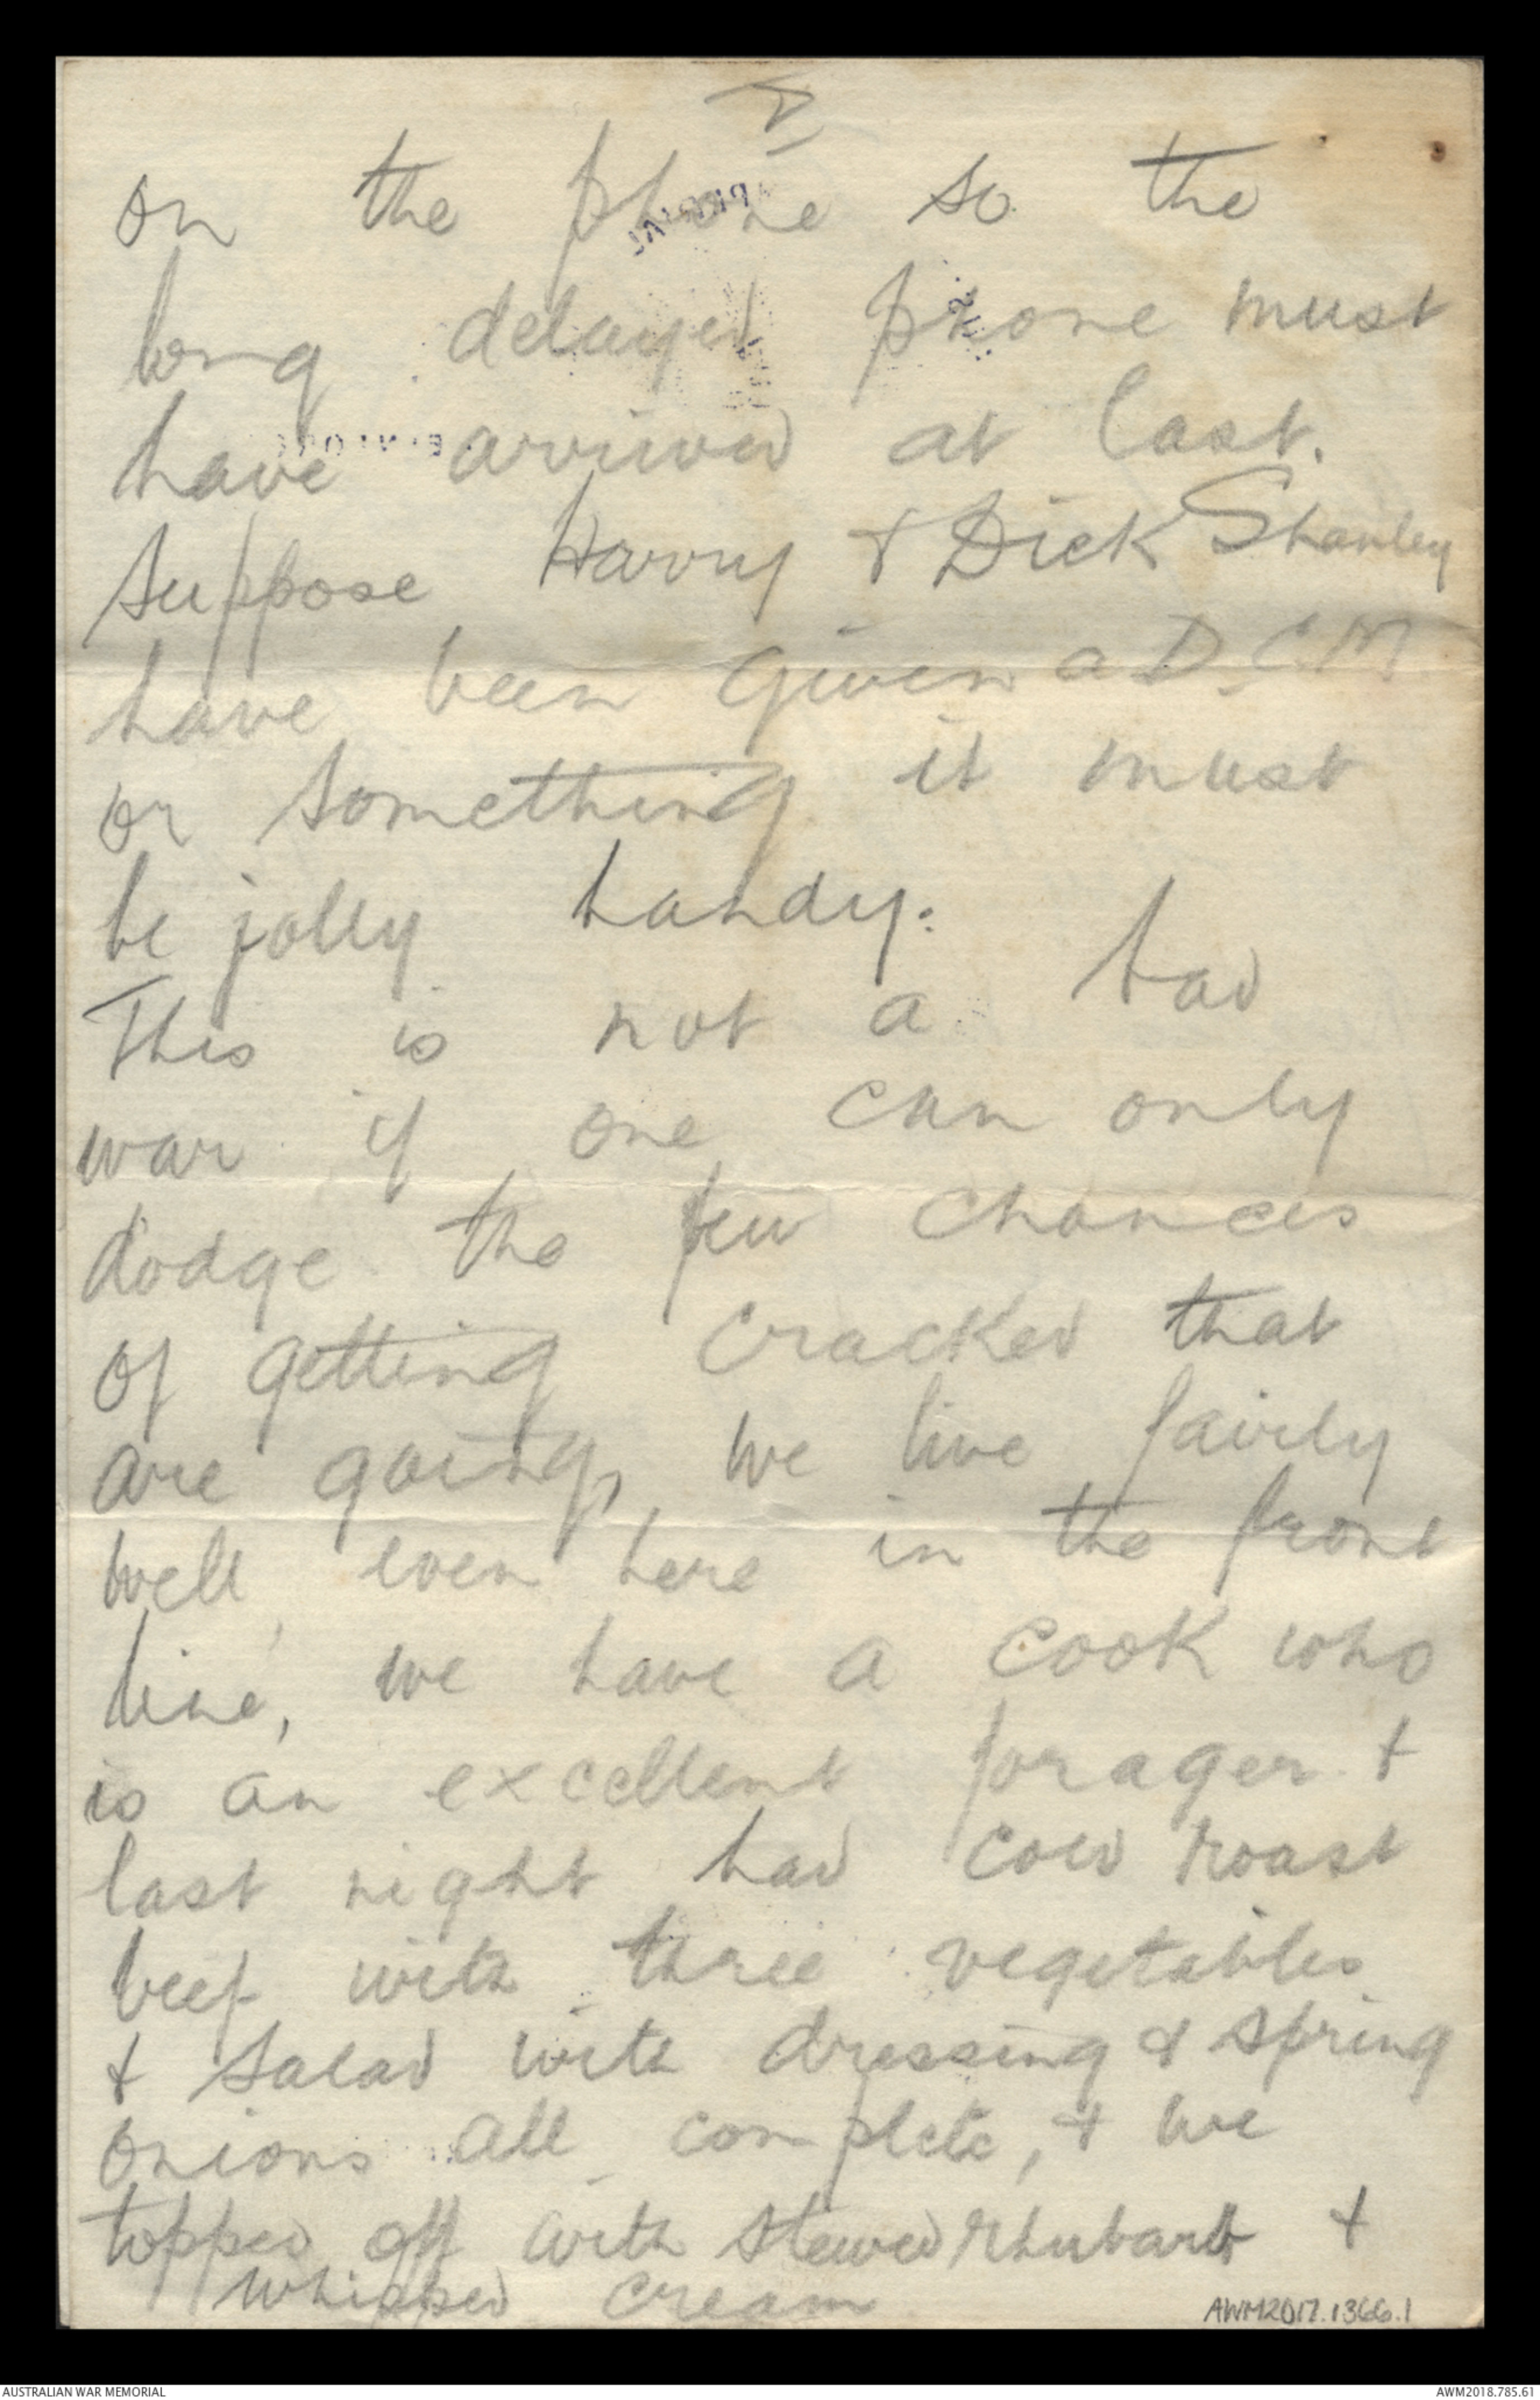 V
on the phone so the
long delayed phone must
have arrived at last.
Suppose Harry & Dick Shanley
have been given a D.C.M
or something it must
be jolly handy.
This is not a bad
war if one can only
dodge the few chances
of getting cracked that
are going, we live fairly
well, even here in the front
line, we have a cook who
is an excellent forager &
last night had cold roast
beef with three vegetables
& salad with dressing & spring
onions all complete, & we
topped off with stewed rhubarb &
whipped cream
AWM2017.1366.1
AUSTRALIAN WAR MEMORIAL
AWM2018.785.61